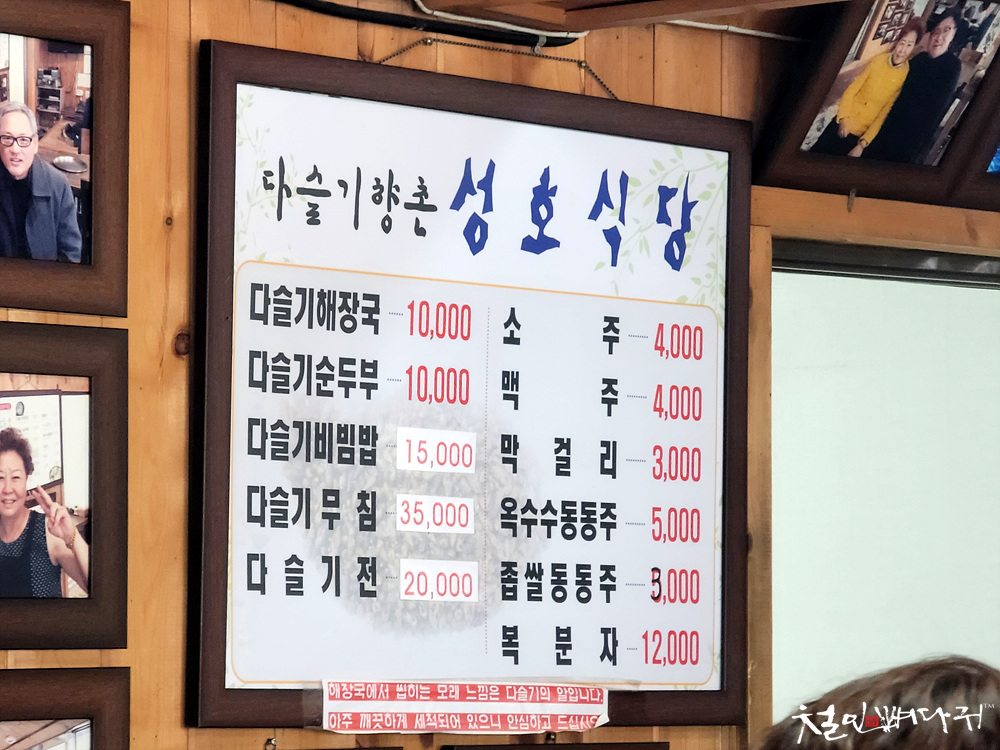 다슬기향촌 성호식당
다슬기해장국 10,000
다슬기순두부 10,000
다슬기비빔밥 15,000
다슬기무침 35,000
다슬기전 20,000
소주 4,000
맥주 4,000
막걸리 3,000
옥수수동동주 5,000
좁쌀동동주 5,000
복분자 12,000
해장국에서 씹히는 모래 느낌은 다슬기의 알입니다.
아주 깨끗하게 세척되어 있으니 안심하고 드십시오